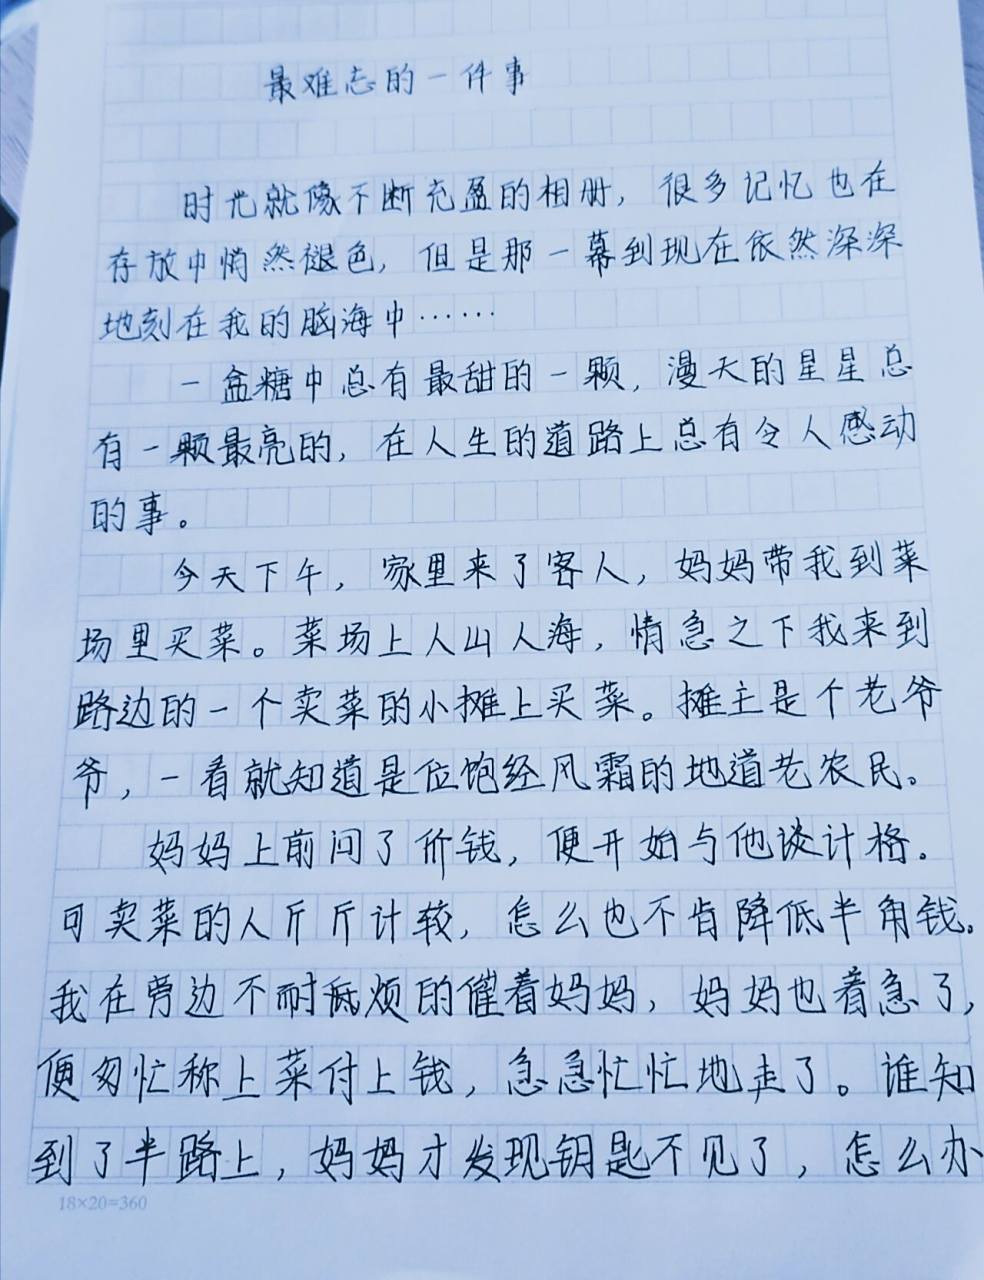 最难忘的一件事
时光就像不断充盈的相册，很多记忆也在
存放中悄然褪色，但是那一幕到现在依然深深
地刻在我的脑海中……
一盒糖中总有最甜的一颗，漫天的星星总
有一颗最亮的，在人生的道路上总有令人感动
的事。
今天下午，家里来了客人，妈妈带我到菜
场里买菜。菜场上人山人海，情急之下我来到
路边的一个卖菜的小摊上买菜。摊主是个老爷
爷，一看就知道是位饱经风霜的地道老农民。
妈妈上前问了价钱，便开始与他谈计格。
可卖菜的人斤斤计较，怎么也不肯降低半角钱。
我在旁边不耐烦的催着妈妈，妈妈也着急了，
便匆忙称上菜付上钱，急急忙忙地走了。谁知
到了半路上，妈妈才发现钥匙不见了，怎么办
18×20=360